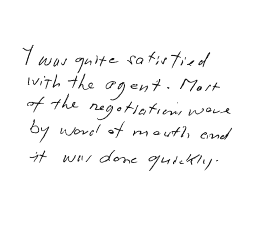 I was quite satisfied
with the agent. Most
of the negotiations wave
by word of mouth and
it was done quickly.